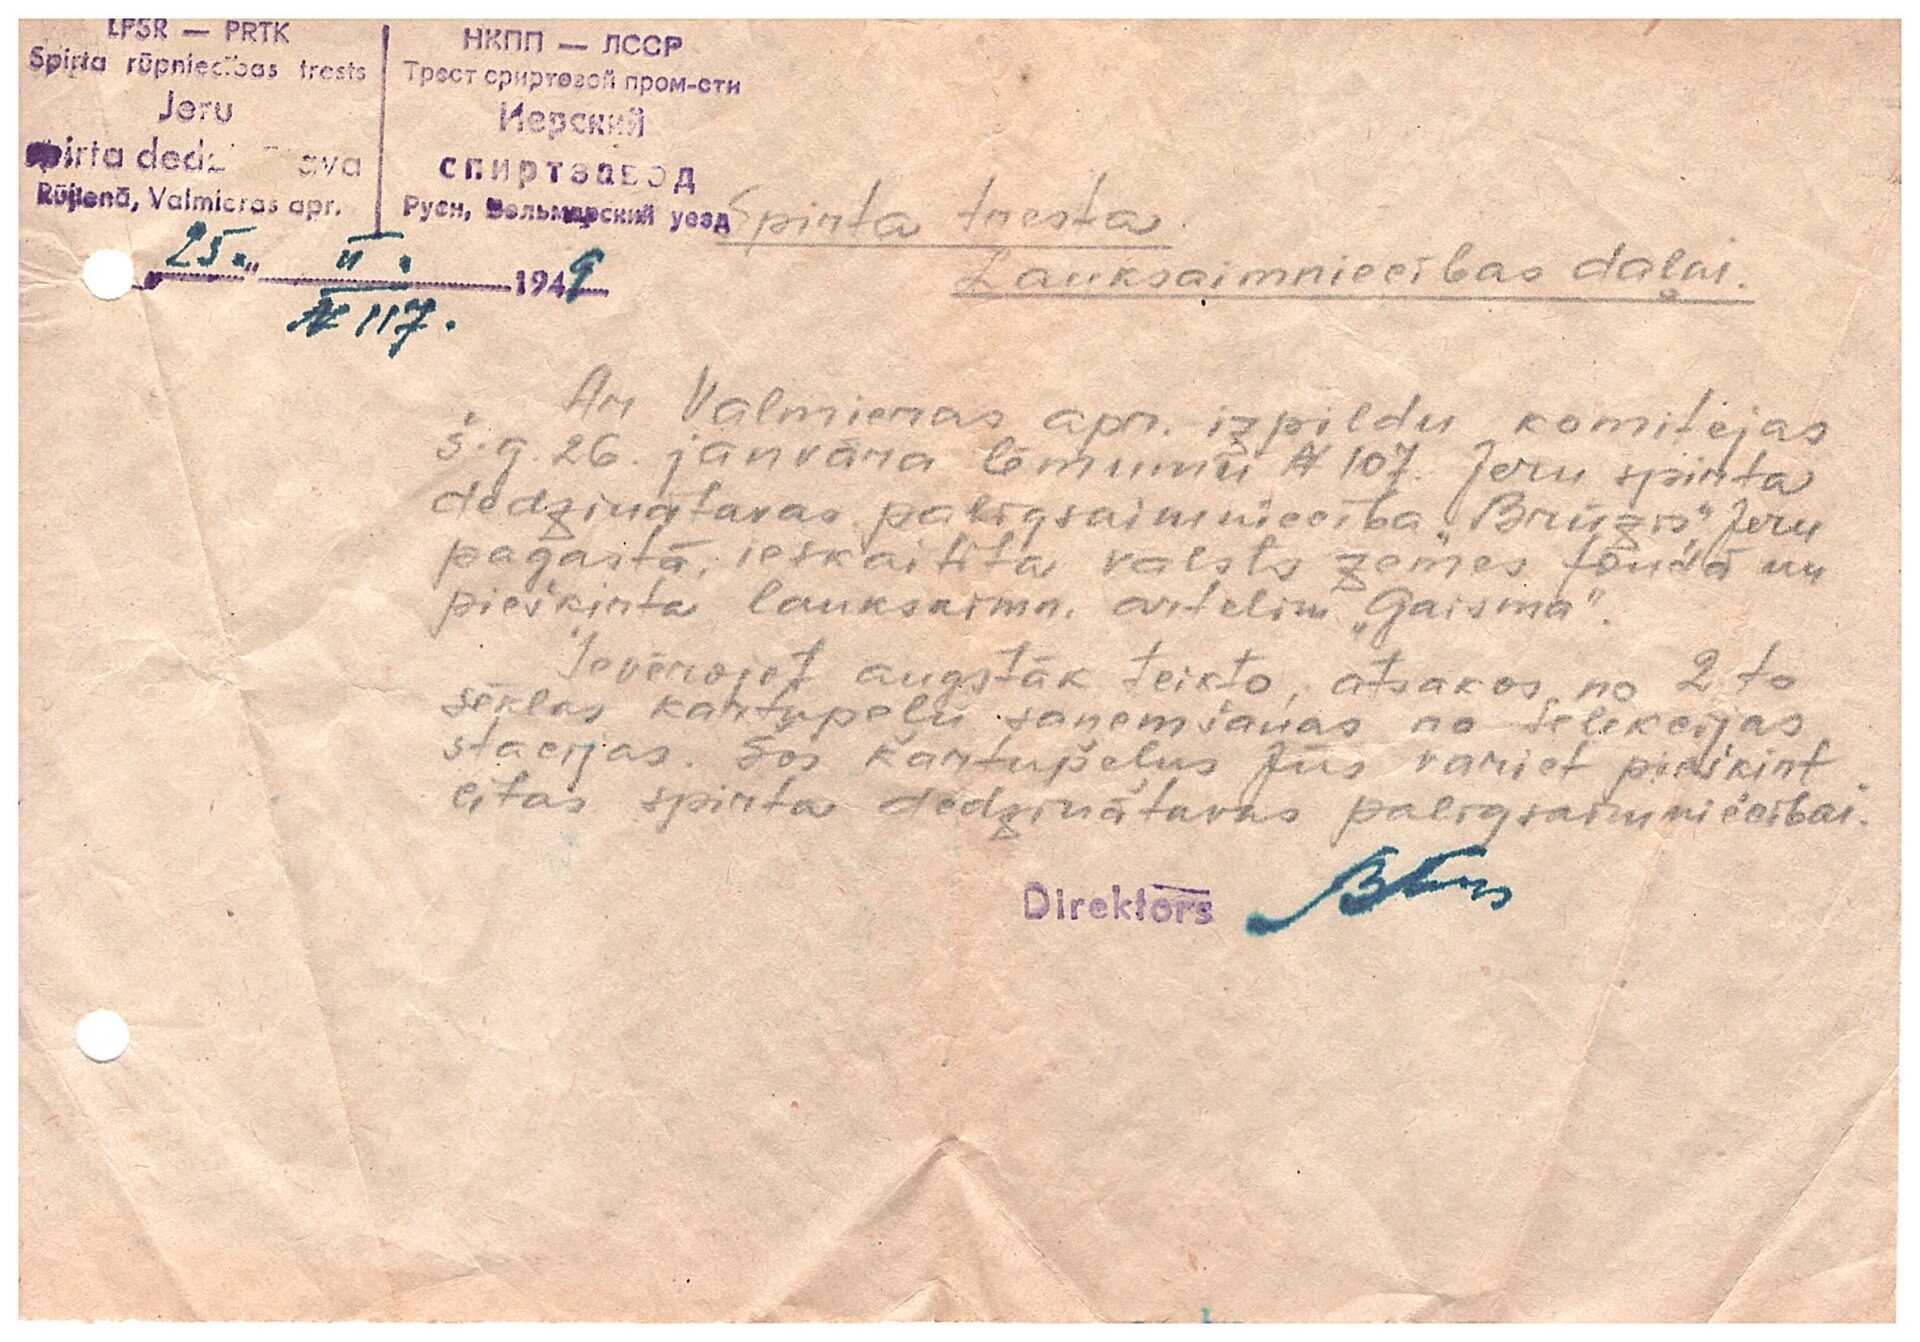 LPSR — PRTK
Spirta rūpniecības trests
Jeru
spirta dedz ava
Rūjienā, Valmieras apr.
НКПП — ЛССР
Трест сриртовой пром-сти
Иерский
спиртзавод
Руен, Вольмарский уезд
„25.“ II. 1949
№ 117.
Spirta tresta
Lauksaimniecības daļai.
Ar Valmieras apr. izpildu komitejas
š.g. 26. janvāra lēmumu № 107. Jeru spirta
dedzinātavas palīgsaimniecība „Brūzis“, Jeru
pagastā, ieskaitīta valsts zemes fondā un
piešķirta lauksaimn. artelim „Gaisma“.
Ievērojot augstāk teikto, atsakos no 2 to
sēklas kartupeļu saņemšanas no selekcijas
stacijas. Šos kartupeļus Jūs variet piešķirt
citas spirta dedzinātavas palīgsaimniecībai.
Direktors